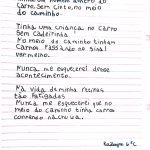 carro sem cinto, no meio
do caminho.
Tinha uma criança no carro
sem cadeirinha.
No meio do caminho tinham
carros passando no sinal
vermelho.
Nunca me esquecerei desse
acontecimento.
Na vida de minha retinas
tão fatigadas.
Nunca me esquecerei que no
meio do caminho tinha carros
correndo no racha.
6º C